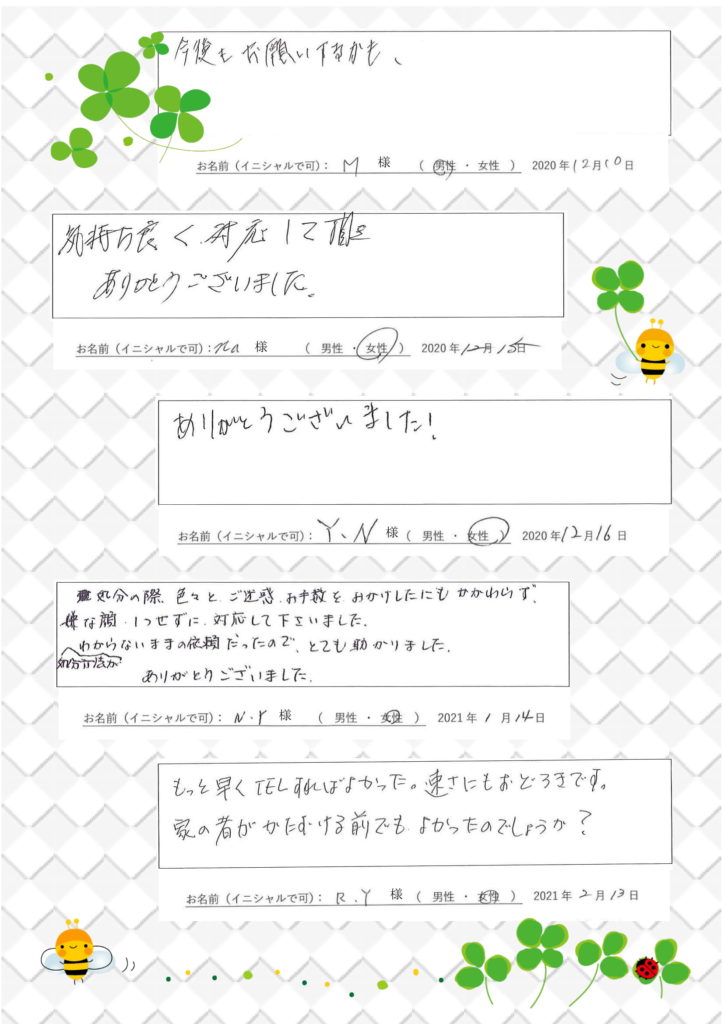 今後も お願いするかも、
お名前（イニシャルで可）： M 様 （ 男性 ・ 女性 ） 2020 年 12 月 10 日
気持ち良く 対応して頂き
ありがとうございました。
お名前（イニシャルで可）： 様 （ 男性 ・ 女性 ） 2020 年 12 月 15 日
ありがとうございました!
お名前（イニシャルで可）： Y、N 様 （ 男性 ・ 女性 ） 2020 年 12 月 16 日
処分の際、色々と、ご迷惑、お手数を、おかけしたにもかかわらず、
嫌な顔・1つせずに、対応して下さいました。
処分方法が わからないままの依頼だったので、とても助かりました。
ありがとうございました。
お名前（イニシャルで可）： N・Y 様 （ 男性 ・ 女性 ） 2021 年 1 月 14 日
もっと早くTELすればよかった。速さにもおどろきです。
家の者がかたむける前でも よかったのでしょうか？
お名前（イニシャルで可）： R.Y 様 （ 男性 ・ 女性 ） 2021 年 2 月 13 日